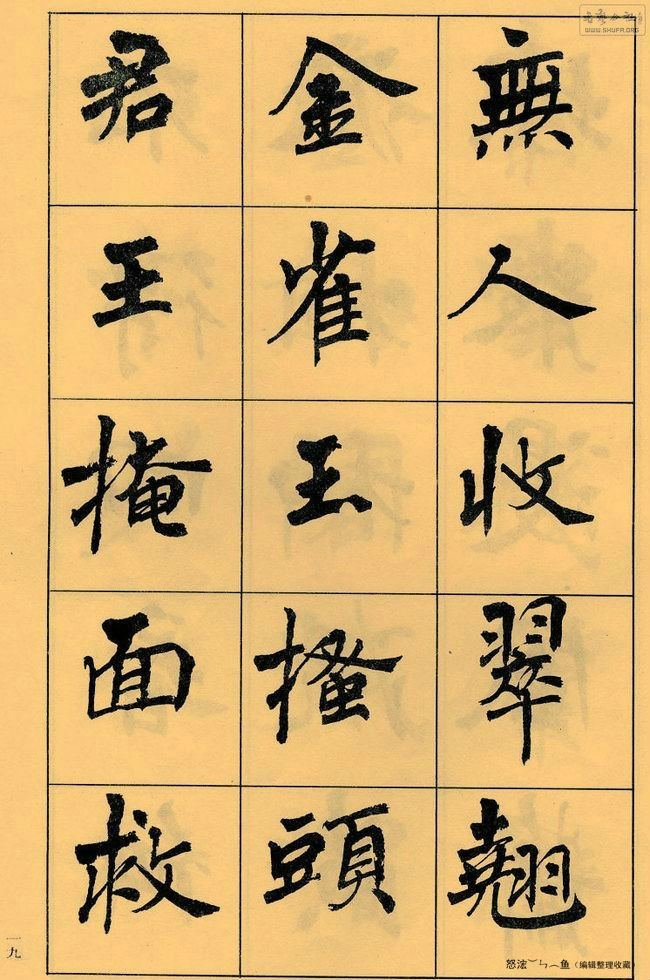 無人收翠翹
金雀玉搔頭
君王掩面救
一九
WWW.SHUFA.ORG
(编辑整理收藏)